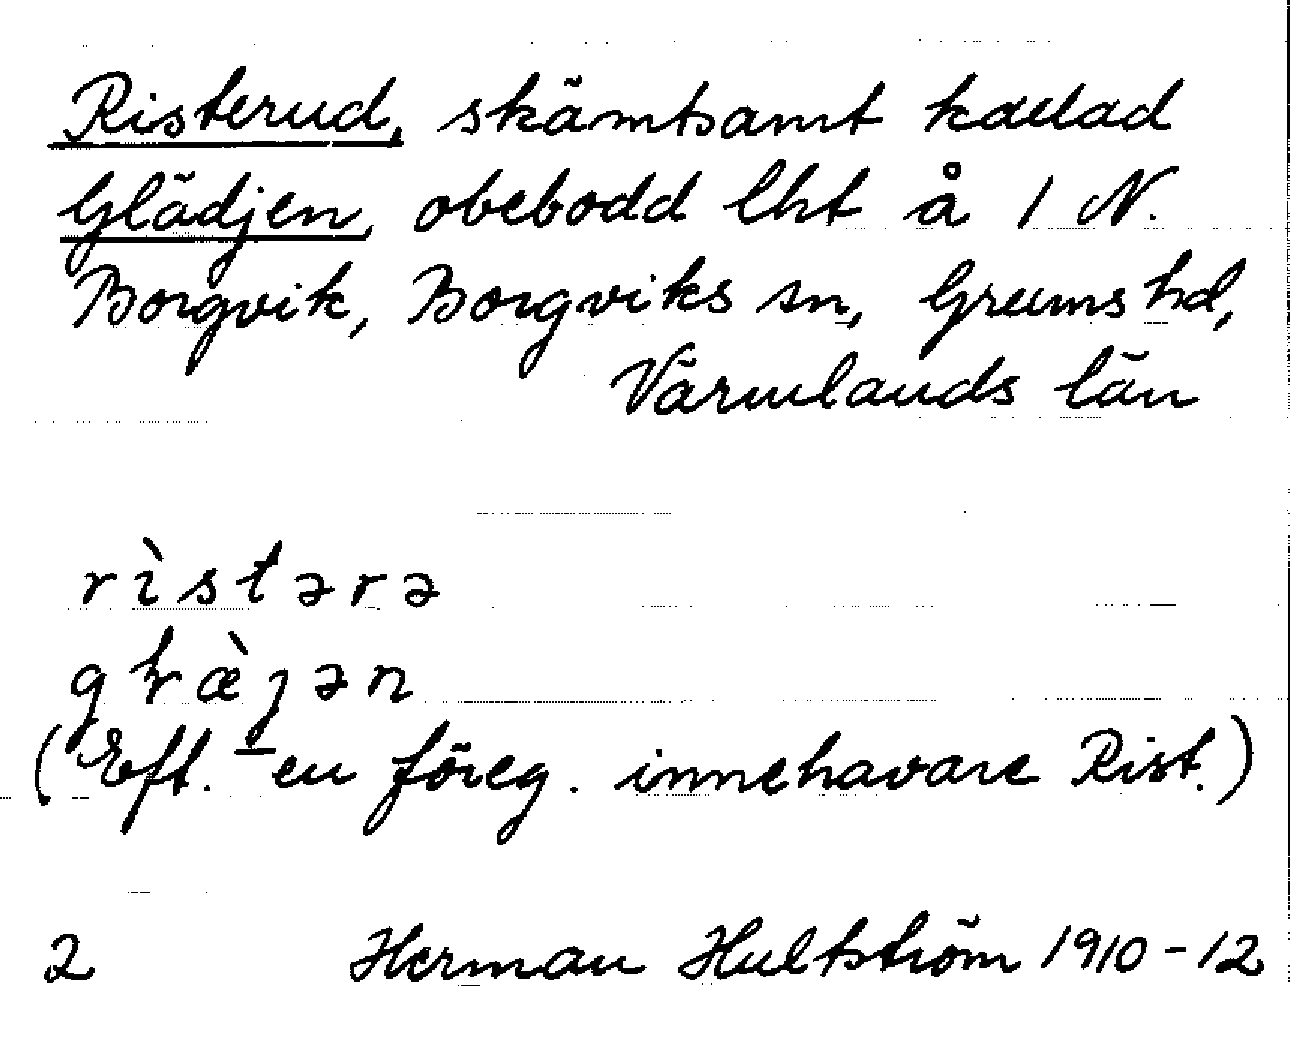 Risterud, skämtsamt kallad
Glädjen, obebodd lht å 1 N.
Borgvik, Borgviks sn, Grums hd,
Värmlands län
rìstərə
gɫæ̀jən
(Eft. en föreg. innehavare Rist.)
2 Herman Hultström 1910-12